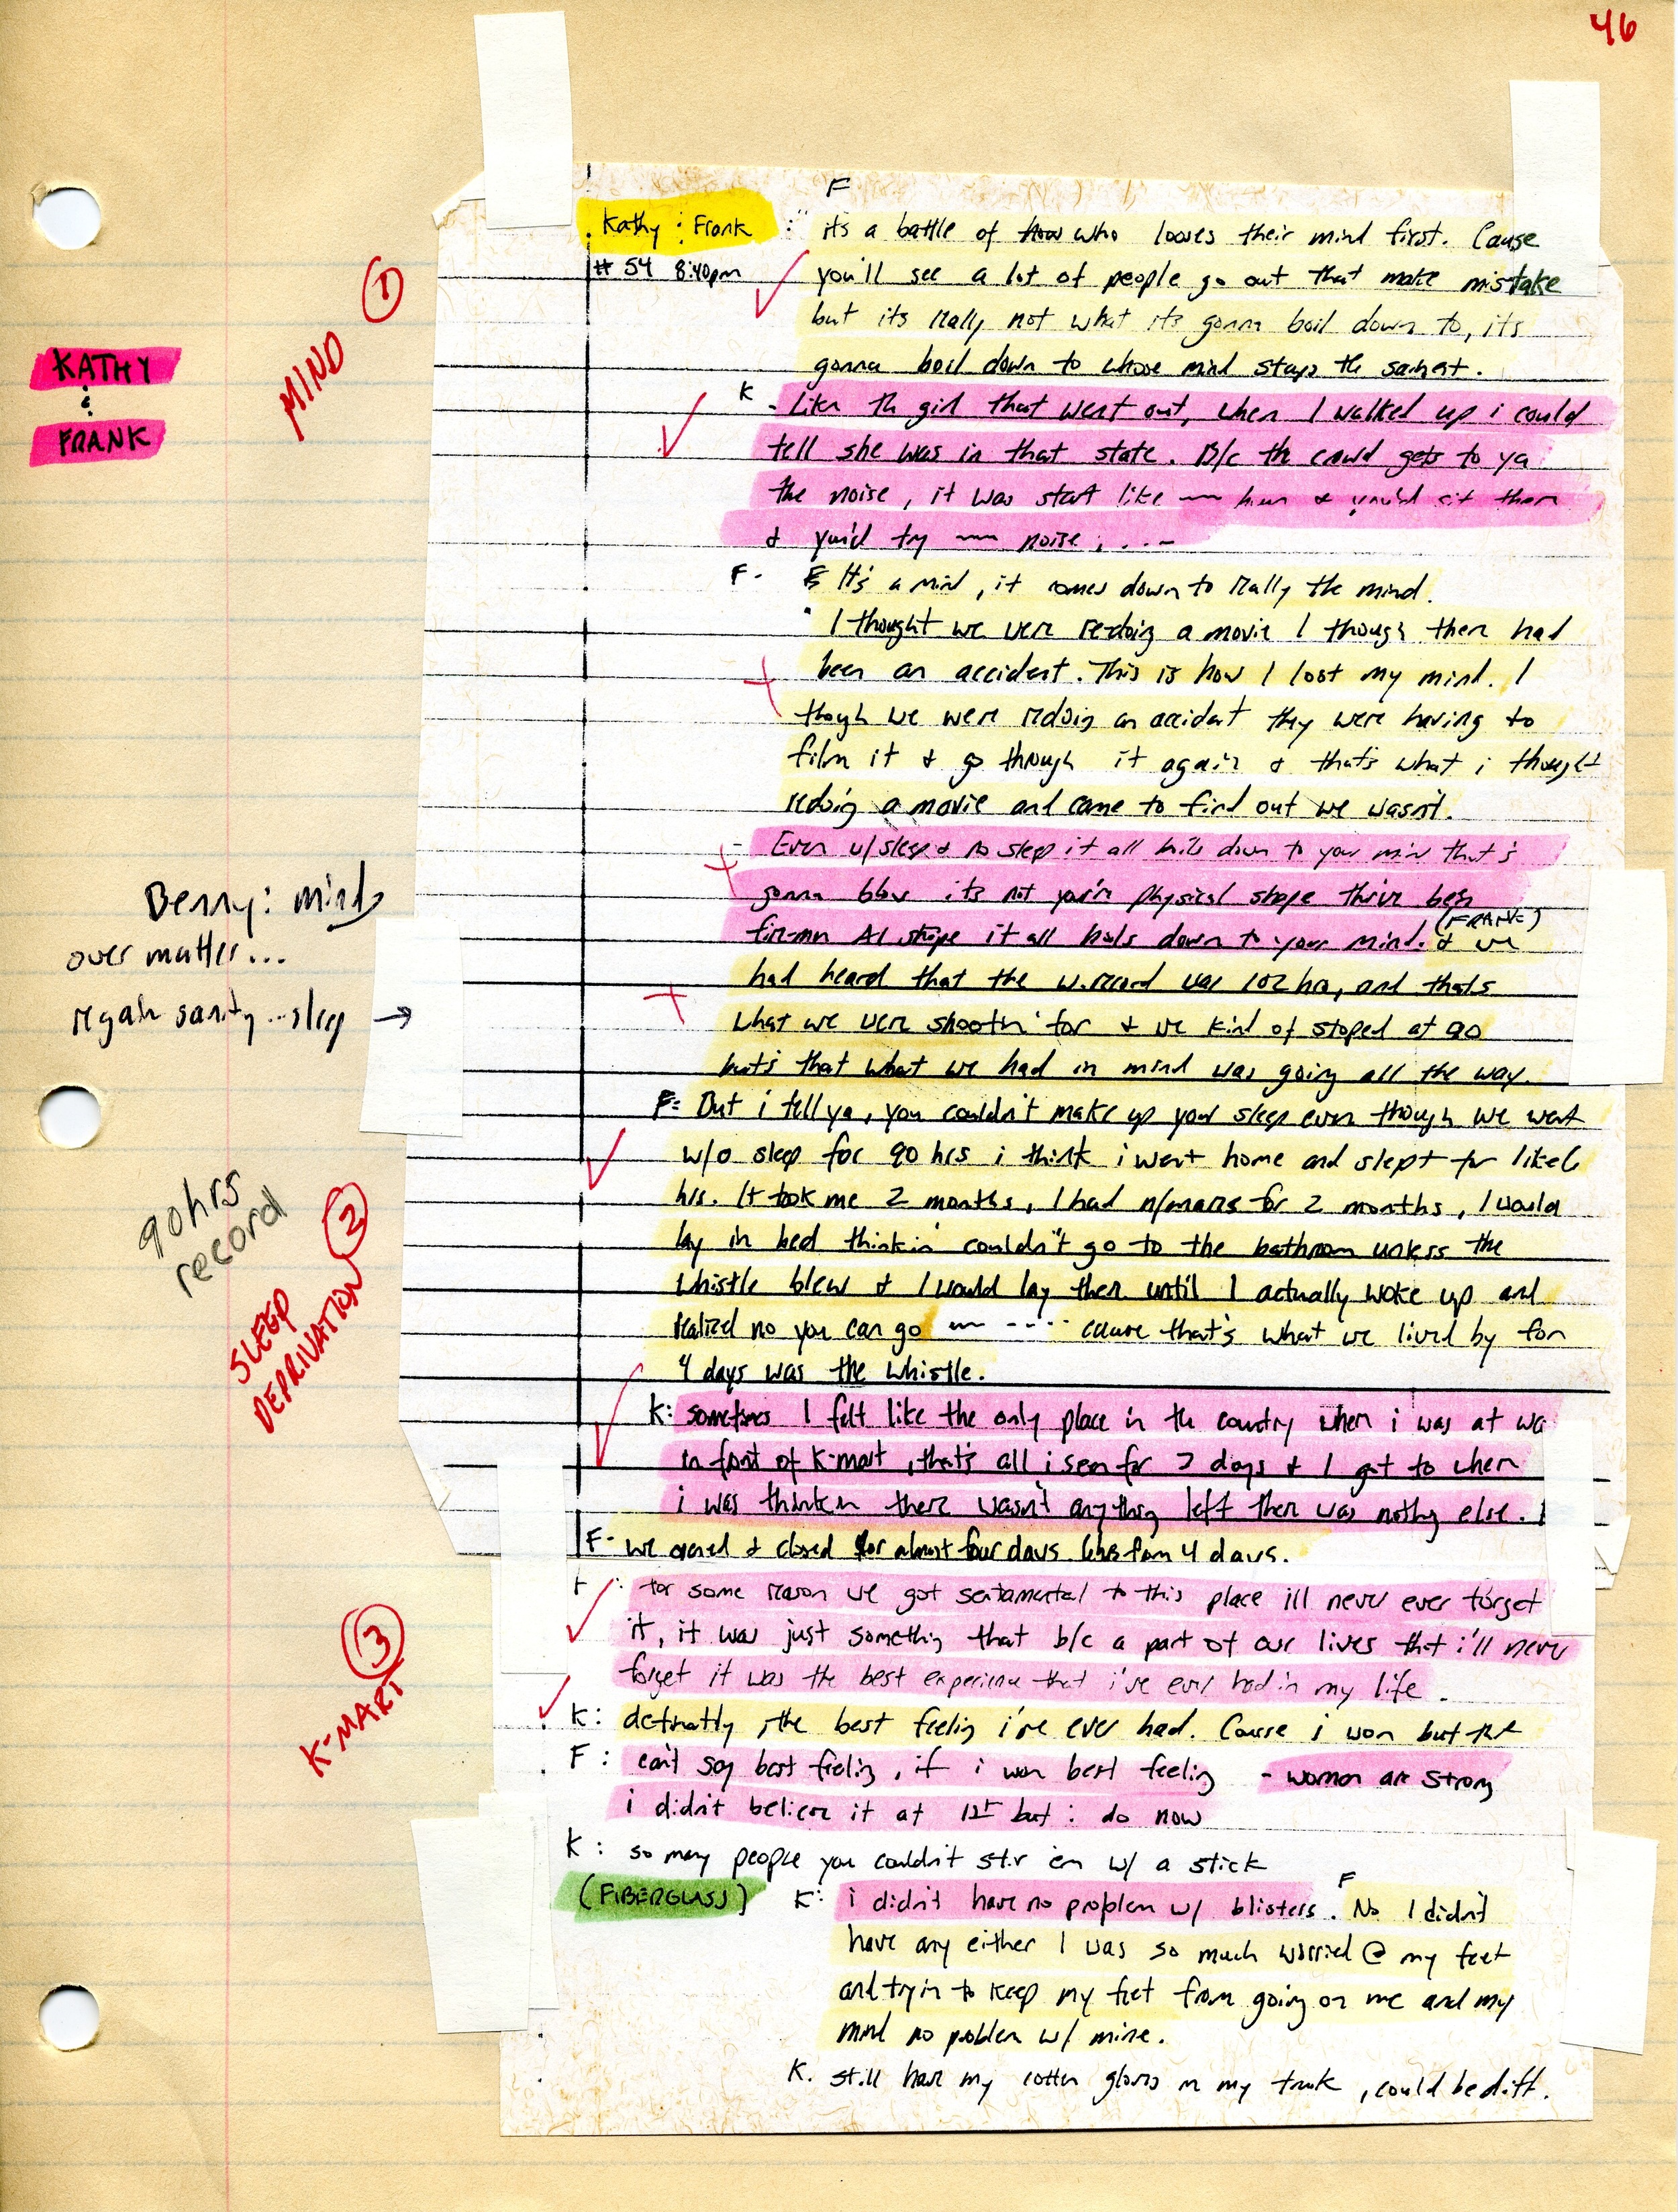 46
F
Kathy : Frank :" its a battle of how who looses their mind first. Cause
# 54 8:40pm you'll see a lot of people go out that make mistake
but its really not what its gonna boil down to, its
gonna boil down to whose mind stays the sanest.
MIND 1
KATHY
&
FRANK
K - Like th girl that went out, when I walked up i could
tell she was in that state. B/c the crowd gets to ya
the noise, it was start like ~~ & you'd sit there
& you'd try ~~ noise ; ...-
F- It's a mind, it comes down to really the mind.
" I thought we were redoing a movie I though there had
been an accident. This is how I lost my mind. I
though we were redoing an accident they were having to
film it & go through it again & that's what i thought
redoing a movie and came to find out we wasn't.
- Even w/sleep & no sleep it all boils down to your mind that's
gonna blow its not you're physical shape thrive been
firemn A1 shape it all boils down to your mind. (FRANK) & we
had heard that the w.record was 102 hrs, and thats
what we were shootin' for & we kind of stoped at 90
but's that what we had in mind was going all the way.
Benny: mind
over matter...
regain sanity...sleep →
F: But i tell ya, you couldn't make up your sleep even though we went
w/o sleep for 90 hrs i think i went home and slept for like 6
hrs. It took me 2 months, I had n/mares for 2 months, I would
lay in bed thinkin' couldn't go to the bathroom unless the
whistle blew & I would lay there until I actually woke up and
realized no you can go ~~ ---- cause that's what we lived by for
4 days was the whistle.
90hrs
record
SLEEP
DEPRIVATION 2
K: sometimes I felt like the only place in the country when i was at wa
in front of K-mart, that's all i seen for 3 days & I got to when
i was thinkin there wasn't anything left there was nothing else. I
F- we opened & closed for almost four days. 6hrs from 4 days.
: for some reason we got sentamental to this place ill never ever forget
it, it was just something that b/c a part of our lives that i'll never
forget it was the best experience that i've ever had in my life.
K-MART 3
K: definatly, the best feeling i've ever had. Cause i won but the
F: can't say best feeling, if i won best feeling - women are strong
i didn't believe it at 1st but i do now
K: so many people you couldn't stir em w/ a stick
(FIBERGLASS) K: i didn't have no problem w/ blisters. F No I didn't
have any either I was so much worried @ my feet
and tryin to keep my feet from going on me and my
mind no problem w/ mine.
K. still have my cotton gloves in my truck, could be diff.